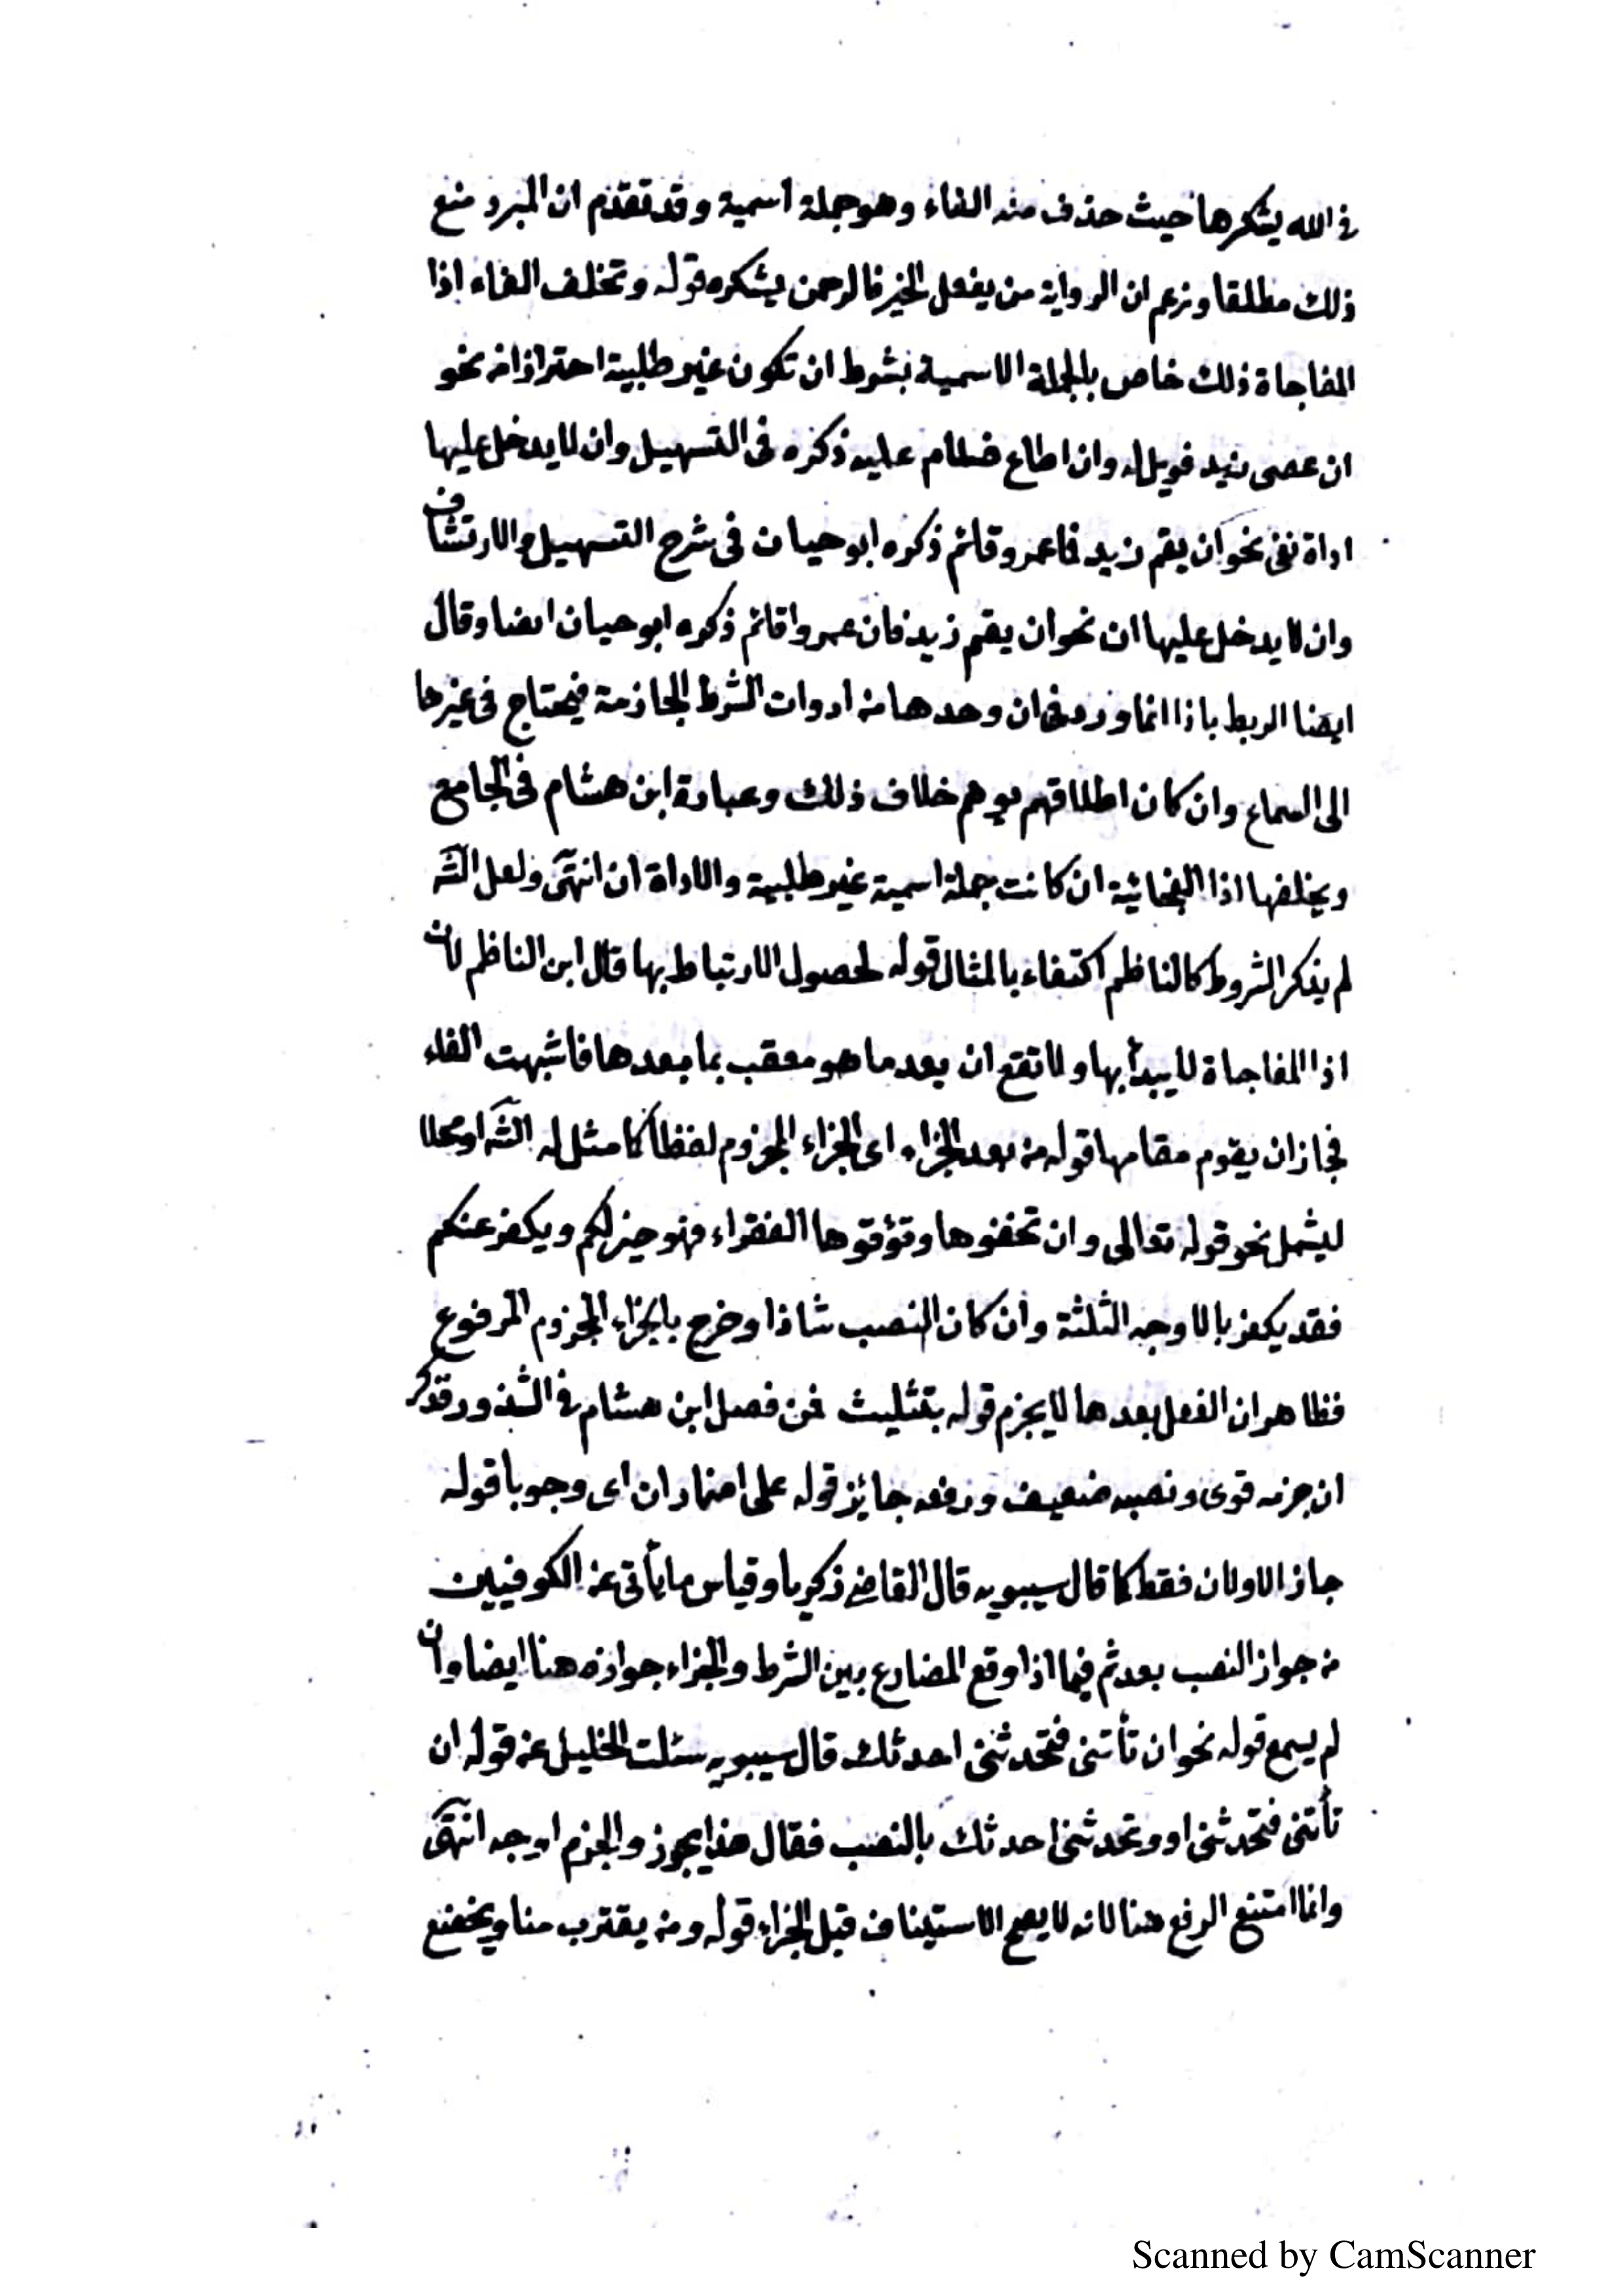 في الله يشكرها حيث حذف منه الفاء وهو جملة اسمية وقد تقدم ان المبرد منع
ذلك مطلقا وزعم ان الرواية من يفعل الخير فالرحمن يشكره قوله وتخلف الفاء اذا
المفاجاة ذلك خاص بالجملة الاسمية بشرط ان تكون غير طلبية احترازا من نحو
ان عصى زيد فويل له وان اطاع فسلام عليه ذكره فى التسهيل وان لا يدخل عليها
اداة نفى نحو ان يقم زيد فما عمرو قائم ذكره ابو حيان فى شرح التسهيل والارتشاف
وان لا يدخل عليها ان نحو ان يقم زيد فان عمروا قائم ذكره ابو حيان ايضا وقال
ايضا الربط باذا انما ورد فى ان وحدها من ادوات الشرط الجازمة فيحتاج فى غيرها
الى السماع وان كان اطلاقهم يوهم خلاف ذلك وعبارة ابن هشام فى الجامع
ويخلفها اذا الفجائية ان كانت جملة اسمية غير طلبية والاداة ان انتهى ولعل الش
لم يذكر الشروط كالناظم اكتفاء بالمثال قوله لحصول الارتباط بها قال ابن الناظم لان
اذا المفاجاة لا يبدأ بها ولا تقع ان بعد ما هو معقب بما بعدها فاشبهت الفاء
فجاز ان يقوم مقامها قوله من بعد الجزاء اى الجزاء المجزوم لفظا كما مثل له الش او محلا
ليشمل نحو قوله تعالى وان تخفوها وتؤتوها الفقراء فهو خير لكم ويكفر عنكم
فقد يكفر بالاوجه الثلثة وان كان النصب شاذا وخرج بالجزاء المجزوم المرفوع
فظاهر ان الفعل بعدها لا يجزم قوله بتثليث قمن فصل ابن هشام في الشذور فذكر
ان جزمه قوى ونصبه ضعيف ورفعه جايز قوله على اضمار ان اى وجوبا قوله
جاز الاولان فقط كما قال سيبويه قال القاضي زكريا وقياس ما يأتى عن الكوفيين
من جواز النصب بعد ثم فيما اذا وقع المضارع بين الشرط والجزاء جوازه هنا ايضا وان
لم يسمع قوله نحو ان تأتنى فتحدثنى احدثك قال سيبويه سئلت الخليل عن قوله ان
تأتنى فتحدثنى او وتحدثنى احدثك بالنصب فقال هذا يجوز والجزم اوجه انتهى
وانما امتنع الرفع هنا لانه لا يصح الاستيناف قبل الجزاء قوله ومن يقترب منا ويخضع
Scanned by CamScanner